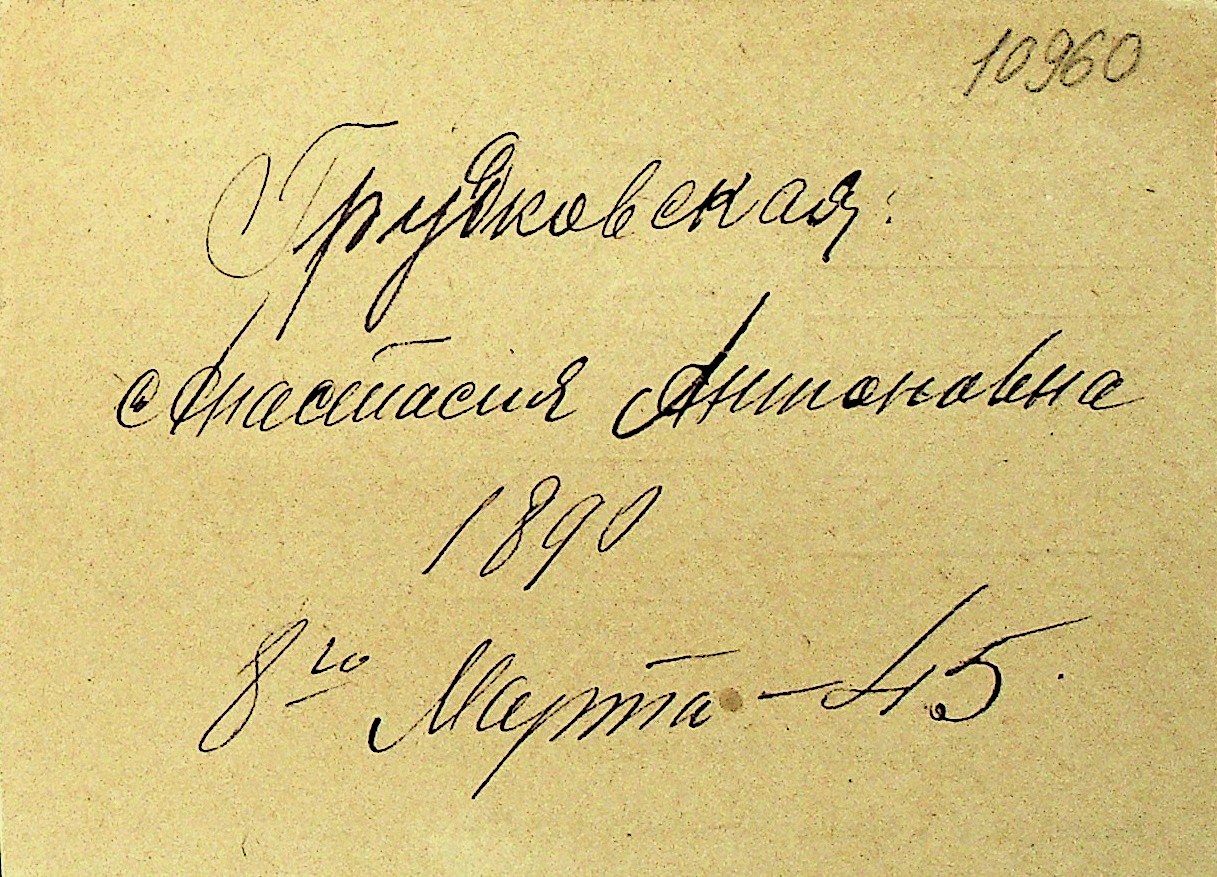 10960
Грудковская:
Анастасия Антоновна
1890
8го Марта – 45.